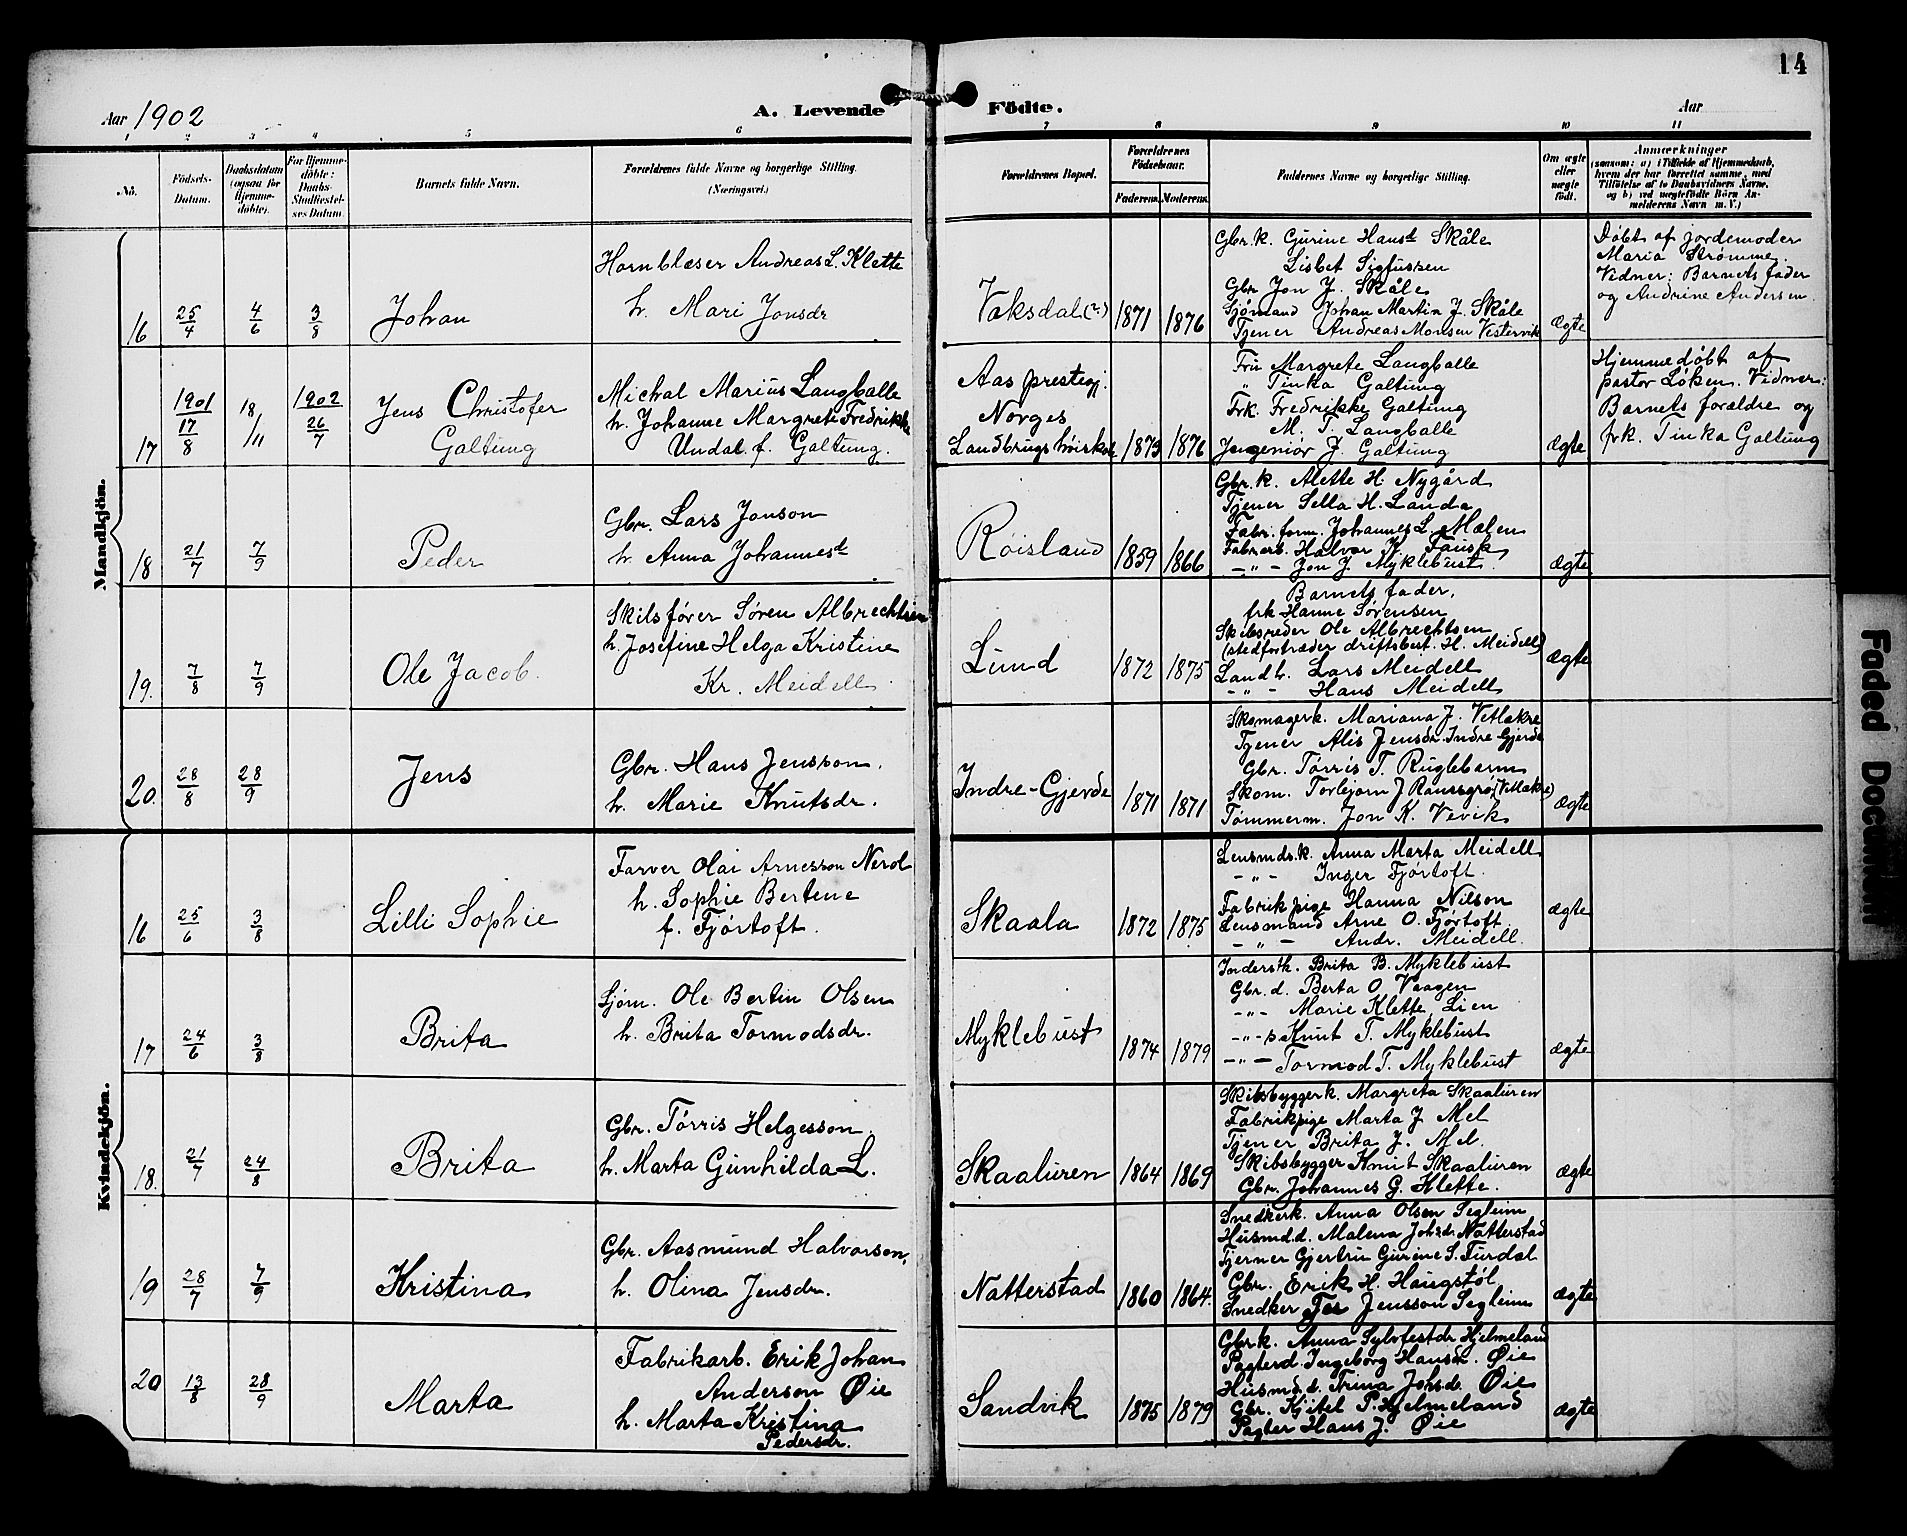 14
Aar 1902
A. Levende Födte.
Aar
1 2 3 4 5 6 7 8 9 10 11
No.
Födsels-Datum.
Daabsdatum (ogsaa for Hjemme-döbte).
For Hjemme-döbte: Daabs-Stadfæstel-ses Datum.
Barnets fulde Navn.
Forældrenes fulde Navne og borgerlige Stilling. (Næringsvei.)
Forældrenes Bopæl.
Forældrenes Födselsaar.
Faderens. Moderens.
Faddernes Navne og borgerlige Stilling.
Om ægte eller uægte födt.
Anmærkninger
(saasom: a) i Tilfælde af Hjemmedaab, hvem der har forrettet samme, med Tilföielse af to Daabsvidners Navne, og b) ved uægtefödte Börn An-melderens Navn m. V.)
Mandkjön.
16 25/4 4/6 3/8 Johan
Hornblæser Andreas L. Klette
h. Mari Jonsdr
Vaksdal(?) 1871 1876
Gbr.k. Gurine Hansdr Skåle
Lisbet Sigfussen
Gbr Jon J. Skåle
Sjømand Johan Martin J. Skåle
Tjener Andreas Monsen Vestervik
Ægte
Døbt af jordemoder
Maria Strømme.
Vidner: Barnets fader
og Andrine Andersen.
17 1901 17/8 18/11 1902 26/7 Jens Christofer
Galtung
Michal Marius Langballe
h. Johanne Margrete Fredrikke
Undal f. Galtung.
Aas prestegj.
Norges
Landbrugshøiskole 1873 1876
Fru Margrete Langballe
" Tinka Galtung
Frk. Fredrikke Galtung
M. T. Langballe
Ingeniør J. Galtung
ægte
Hjemmedøbt af
pastor Løken. Vidner:
Barnets forældre og
frk. Tinka Galtung
18 21/7 7/9 Peder
Gbr. Lars Jonson
h. Anna Johannesdr
Røisland 1859 1866
Gbr.k. Alette H. Nygård
Tjener Sella H. Landa
Fabr. form. Johannes L. Mælen
Fabrarb. Halvor Fausk
- " - Jon J. Myklebust.
ægte
19. 7/8 7/9 Ole Jacob.
Skibsfører Søren Albrechtsen
h. Josefine Helga Kristine
Kr. Meidell.
Lund 1872 1875
Barnets fader,
frk Hanne Sørensen
Skibsreder Ole Albrechtsen
(stedfortræder driftsbest. H. Meidell)
Landh. Lars Meidell
- " - Hans Meidell
ægte
20. 28/8 28/9 Jens
Gbr. Hans Jensson.
h. Marie Knutsdr.
Indre-Gjerde 1871 1871
Skomagerk. Mariana J. Vetlakre
Tjener Alis Jensdr. Indre Gjerde
Gbr. Tørris T. Ruglebarm
Skom. Torbjørn J (Vetlakre)
Tømmerm. Jon K. Vevik
ægte
Kvindekjön.
16 25/6 3/8 Lilli Sophie
Farver Olai Arnesson Nerol
h. Sophie Bertine
f. Fjørtoft.
Skaala 1872 1875
Lensmds.k. Anna Marta Meidell
- " - Inger Fjørtoft.
Fabrikpige Hanna Nilson
Lensmand Arne O. Fjørtoft
- " - Andr. Meidell.
ægte
17 24/6 3/8 Brita
Sjøm. Ole Bertin Olsen
h. Brita Tormodsdr.
Myklebust 1874 1879
Inderstk. Brita B. Myklebust
Gbr. d. Berta O Vaagen
- " - Marie Klette, Lien
- " - s Knut T. Myklebust
- " - Tormod T. Myklebust
ægte
18. 21/7 24/8 Brita
Gbr. Tørris Helgesson.
h. Marta Gunhilda L.
Skaaluren 1864 1869
Skibsbyggerk. Margreta Skaaluren
Fabrikpige Marta J Mel
Tjener Brita J. Mel.
Skibsbygger Knut Skaaluren
Gbr. Johannes G. Klette.
ægte
19 28/7 7/9 Kristina
Gbr. Aasmund Halvorson,
h. Olina Jensdr.
Natterstad 1860 1864.
Snedkerk. Anna Olsen Segleim
Husmd.d. Malena Johsdr. Natterstad
Tjerner Gjertru Gurine S. Furdal
Gbr. Erik H. Haugstøl
Snedker Jensson Segleim
ægte
20 13/8 28/9 Marta
Fabrikarb. Erik Johan
Anderson Øie
h. Marta Kristina
Pedersdr.
Sandvik 1875 1879
Gbrk. Anna Sylvfestdr Hjelmeland
Pagterd. Ingeborg Hansdr. Øie
Husmd.d. Johsdr. Øie
Gbr. Kjitel P. Hjelmeland
Pagter Hans J. Øie
ægte
Faded Document